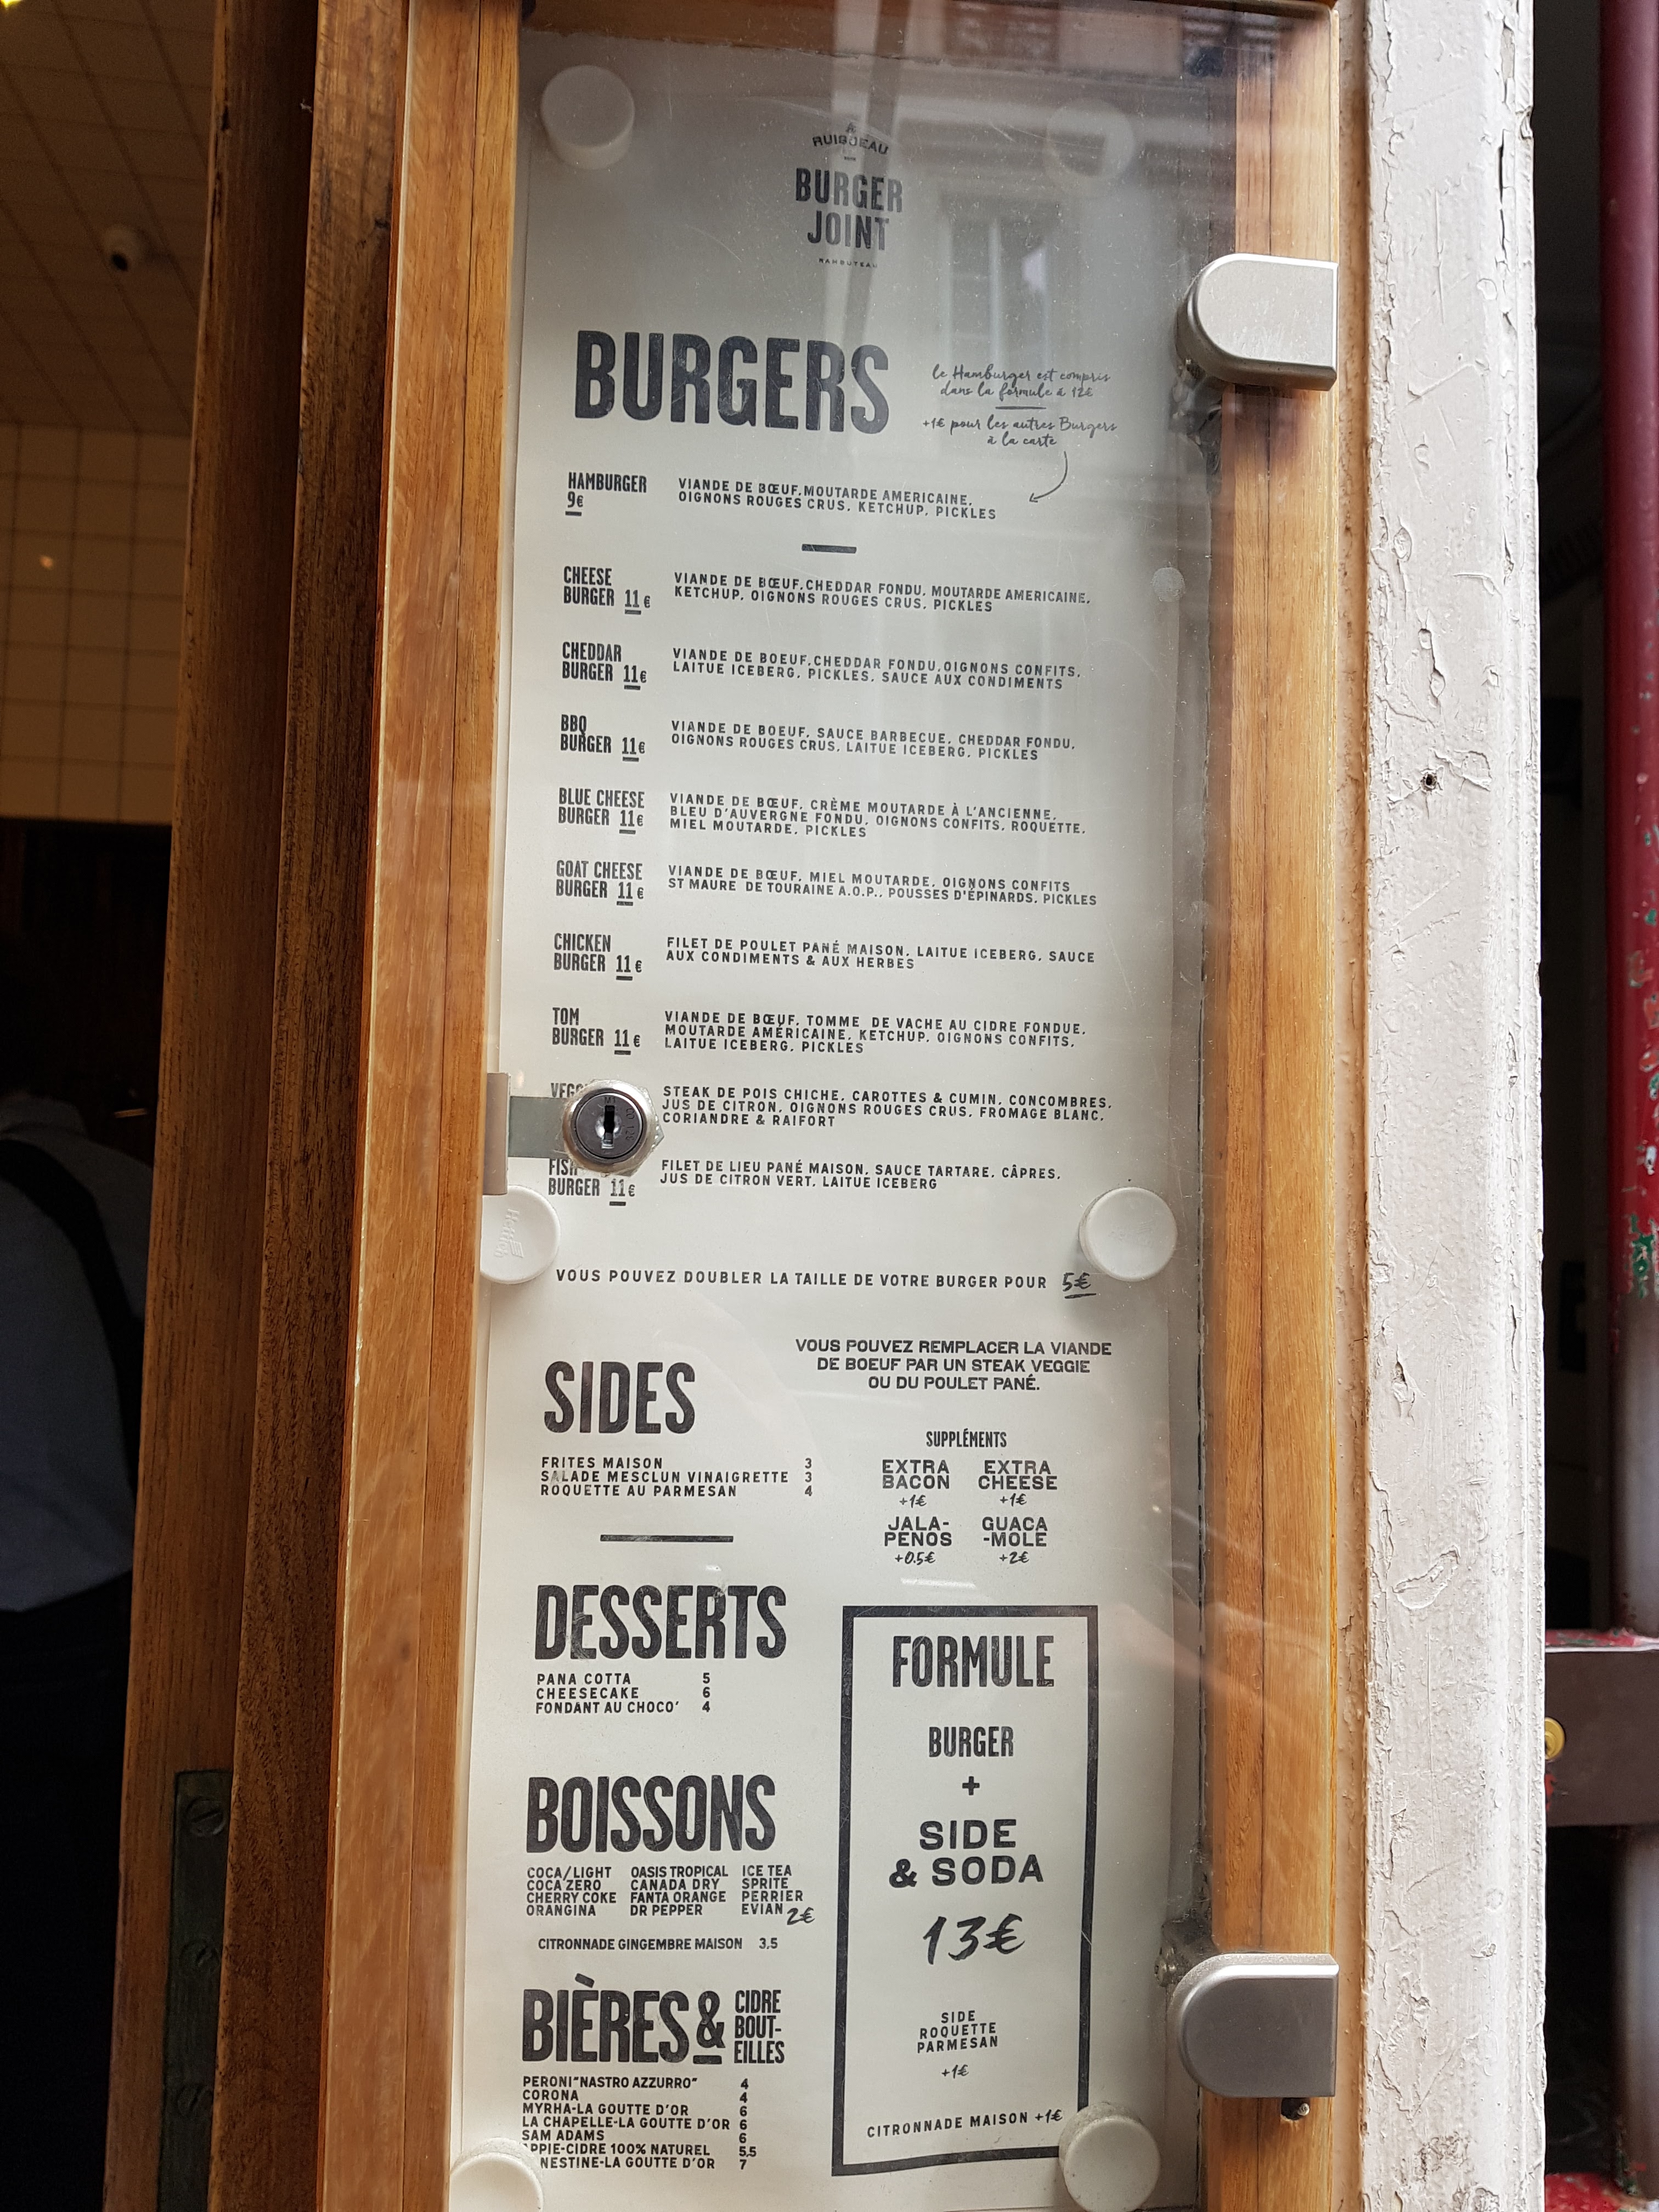 RUISSEAU
BURGER
JOINT
RAMBUTEAU
BURGERS
le Hamburger est compris
dans la formule à 12€
+1€ pour les autres Burgers
à la carte
HAMBURGER
9€
VIANDE DE BŒUF, MOUTARDE AMERICAINE,
OIGNONS ROUGES CRUS, KETCHUP, PICKLES
CHEESE
BURGER 11€
VIANDE DE BŒUF, CHEDDAR FONDU, MOUTARDE AMERICAINE,
KETCHUP, OIGNONS ROUGES CRUS, PICKLES
CHEDDAR
BURGER 11€
VIANDE DE BOEUF, CHEDDAR FONDU, OIGNONS CONFITS,
LAITUE ICEBERG, PICKLES, SAUCE AUX CONDIMENTS
BBQ
BURGER 11€
VIANDE DE BOEUF, SAUCE BARBECUE, CHEDDAR FONDU,
OIGNONS ROUGES CRUS, LAITUE ICEBERG, PICKLES
BLUE CHEESE
BURGER 11€
VIANDE DE BŒUF, CRÈME MOUTARDE À L'ANCIENNE,
BLEU D'AUVERGNE FONDU, OIGNONS CONFITS, ROQUETTE,
MIEL MOUTARDE, PICKLES
GOAT CHEESE
BURGER 11€
VIANDE DE BŒUF, MIEL MOUTARDE, OIGNONS CONFITS
ST MAURE DE TOURAINE A.O.P., POUSSES D'ÉPINARDS, PICKLES
CHICKEN
BURGER 11€
FILET DE POULET PANÉ MAISON, LAITUE ICEBERG, SAUCE
AUX CONDIMENTS & AUX HERBES
TOM
BURGER 11€
VIANDE DE BŒUF, TOMME DE VACHE AU CIDRE FONDUE,
MOUTARDE AMÉRICAINE, KETCHUP, OIGNONS CONFITS,
LAITUE ICEBERG, PICKLES
STEAK DE POIS CHICHE, CAROTTES & CUMIN, CONCOMBRES,
JUS DE CITRON, OIGNONS ROUGES CRUS, FROMAGE BLANC,
CORIANDRE & RAIFORT
FISH
BURGER 11€
FILET DE LIEU PANÉ MAISON, SAUCE TARTARE, CÂPRES,
JUS DE CITRON VERT, LAITUE ICEBERG
VOUS POUVEZ DOUBLER LA TAILLE DE VOTRE BURGER POUR 5€
VOUS POUVEZ REMPLACER LA VIANDE
DE BOEUF PAR UN STEAK VEGGIE
OU DU POULET PANÉ.
SIDES
FRITES MAISON 3
SALADE MESCLUN VINAIGRETTE 3
ROQUETTE AU PARMESAN 4
SUPPLÉMENTS
EXTRA
BACON
+1€
EXTRA
CHEESE
+1€
JALA-
PENOS
+0.5€
GUACA
-MOLE
+2€
DESSERTS
PANA COTTA 5
CHEESECAKE 6
FONDANT AU CHOCO' 4
BOISSONS
COCA/LIGHT OASIS TROPICAL ICE TEA
COCA ZERO CANADA DRY SPRITE
CHERRY COKE FANTA ORANGE PERRIER
ORANGINA DR PEPPER EVIAN 2€
CITRONNADE GINGEMBRE MAISON 3,5
BIÈRES &
CIDRE
BOUT-
EILLES
PERONI "NASTRO AZZURRO" 4
CORONA 4
MYRHA-LA GOUTTE D'OR 6
LA CHAPELLE-LA GOUTTE D'OR 6
SAM ADAMS 6
APPIE-CIDRE 100% NATUREL 5,5
NESTINE-LA GOUTTE D'OR 7
FORMULE
BURGER
+
SIDE
& SODA
13€
SIDE
ROQUETTE
PARMESAN
+1€
CITRONNADE MAISON +1€